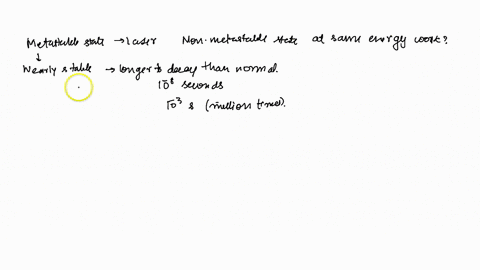 Metastable state → laser Non-metastable state at same energy wont?
↓
Nearly stable → longer to decay than normal.
10⁻⁸ seconds
10⁻³ s (million times).